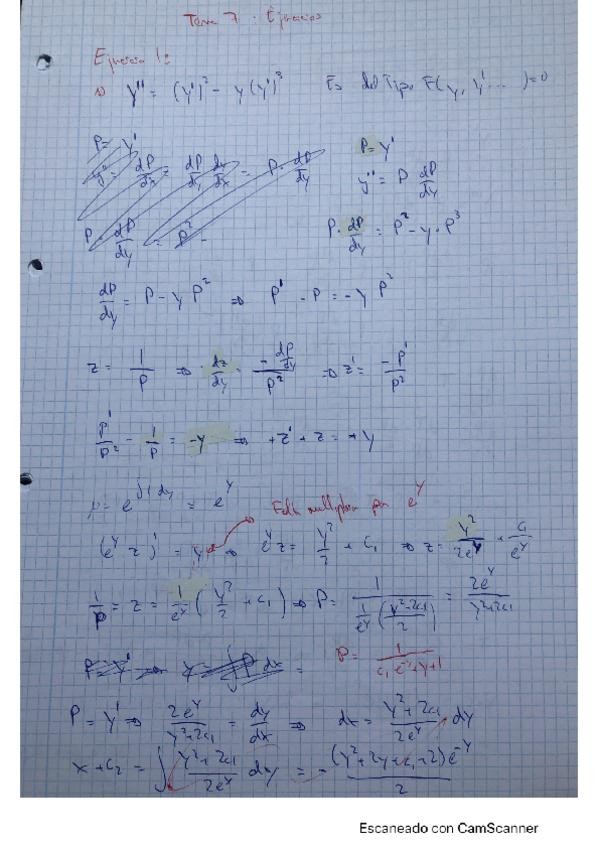 Tarea 7: Ejercicios
Ejercicio 1:
a) y'' = (y')² - y(y')³ Es del Tipo F(y, y' ...) = 0
P = y'
y'' = dP/dx = dP/dy dy/dx = P · dP/dy
P dP/dy = P² -
P = y'
y'' = P dP/dy
P · dP/dy = P² - y · P³
dP/dy = P - y P² ⇒ P' - P = -y P²
z = 1/P ⇒ dz/dy = -dP/dy / P² ⇒ z' = -P'/P²
P'/P² - 1/P = -y ⇒ +z' + z = +y
μ = e^∫1 dy = e^y
Falta multiplicar por e^y
(e^y z)' = y ⇒ e^y z = y²/2 + c₁ ⇒ z = y²/2e^y + c₁/e^y
1/P = z = 1/e^y (y²/2 + c₁) ⇒ P = 1 / (1/e^y ((y²+2c₁)/2)) = 2e^y / (y²+2c₁)
P = y' ⇒ y = ∫P dx =
P = 1 / (c₁e^-y + y + 1)
P = y' ⇒ 2e^y/(y²+2c₁) = dy/dx ⇒ dx = (y²+2c₁)/2e^y dy
x + c₂ = ∫ (y²+2c₁)/2e^y dy = - (y²+2y+c₁+2)e^-y / 2
Escaneado con CamScanner